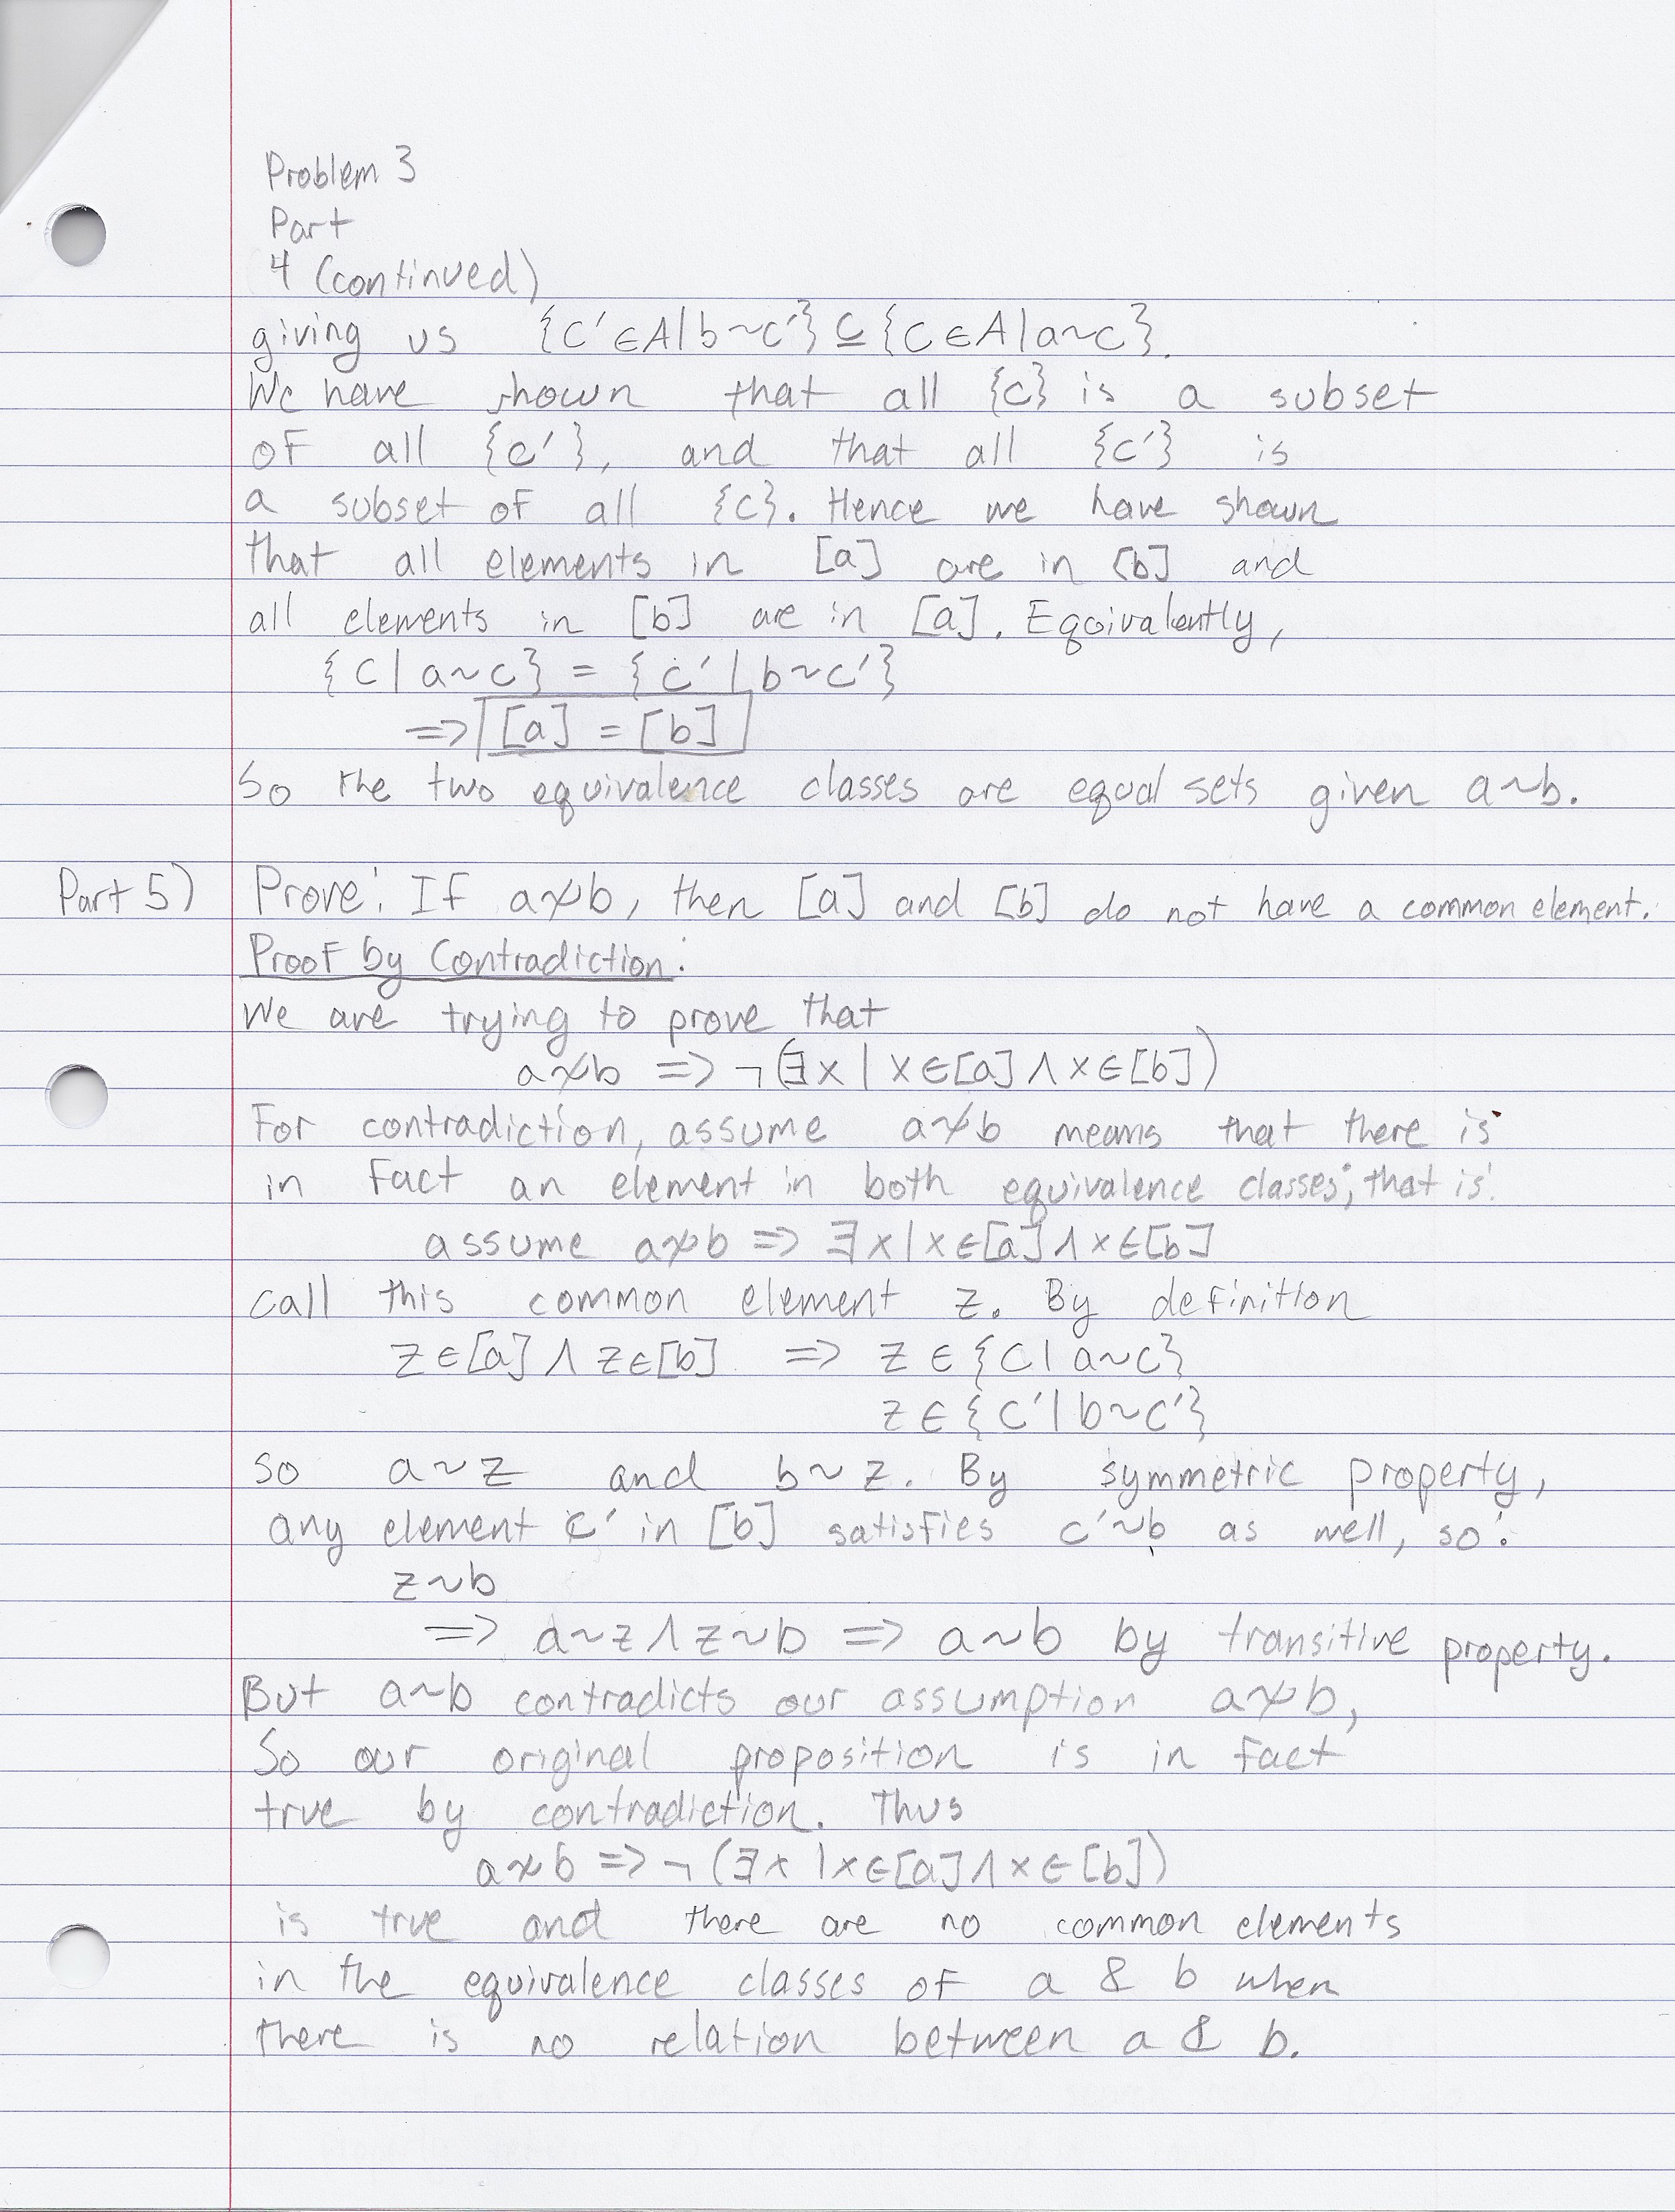 Problem 3
Part
4 (continued)
giving us {c' ∈ A | b ~ c'} ⊆ {c ∈ A | a ~ c}.
We have shown that all {c} is a subset
of all {c'}, and that all {c'} is
a subset of all {c}. Hence we have shown
that all elements in [a] are in [b] and
all elements in [b] are in [a]. Eqoivalently,
{c | a ~ c} = {c' | b ~ c'}
=> [a] = [b]
So the two equivalence classes are equal sets given a ~ b.
Part 5) Prove: If a ≁ b, then [a] and [b] do not have a common element.
Proof by Contradiction:
We are trying to prove that
a ≁ b => ¬(∃x | x ∈ [a] ∧ x ∈ [b])
For contradiction, assume a ≁ b means that there is
in fact an element in both equivalence classes; that is:
assume a ≁ b => ∃x | x ∈ [a] ∧ x ∈ [b]
call this common element z. By definition
z ∈ [a] ∧ z ∈ [b] => z ∈ {c | a ~ c}
z ∈ {c' | b ~ c'}
so a ~ z and b ~ z. By symmetric property,
any element c' in [b] satisfies c' ~ b as well, so:
z ~ b
=> a ~ z ∧ z ~ b => a ~ b by transitive property.
But a ~ b contradicts our assumption a ≁ b,
So our original proposition is in fact
true by contradiction. Thus
a ≁ b => ¬(∃x | x ∈ [a] ∧ x ∈ [b])
is true and there are no common elements
in the equivalence classes of a & b when
there is no relation between a & b.